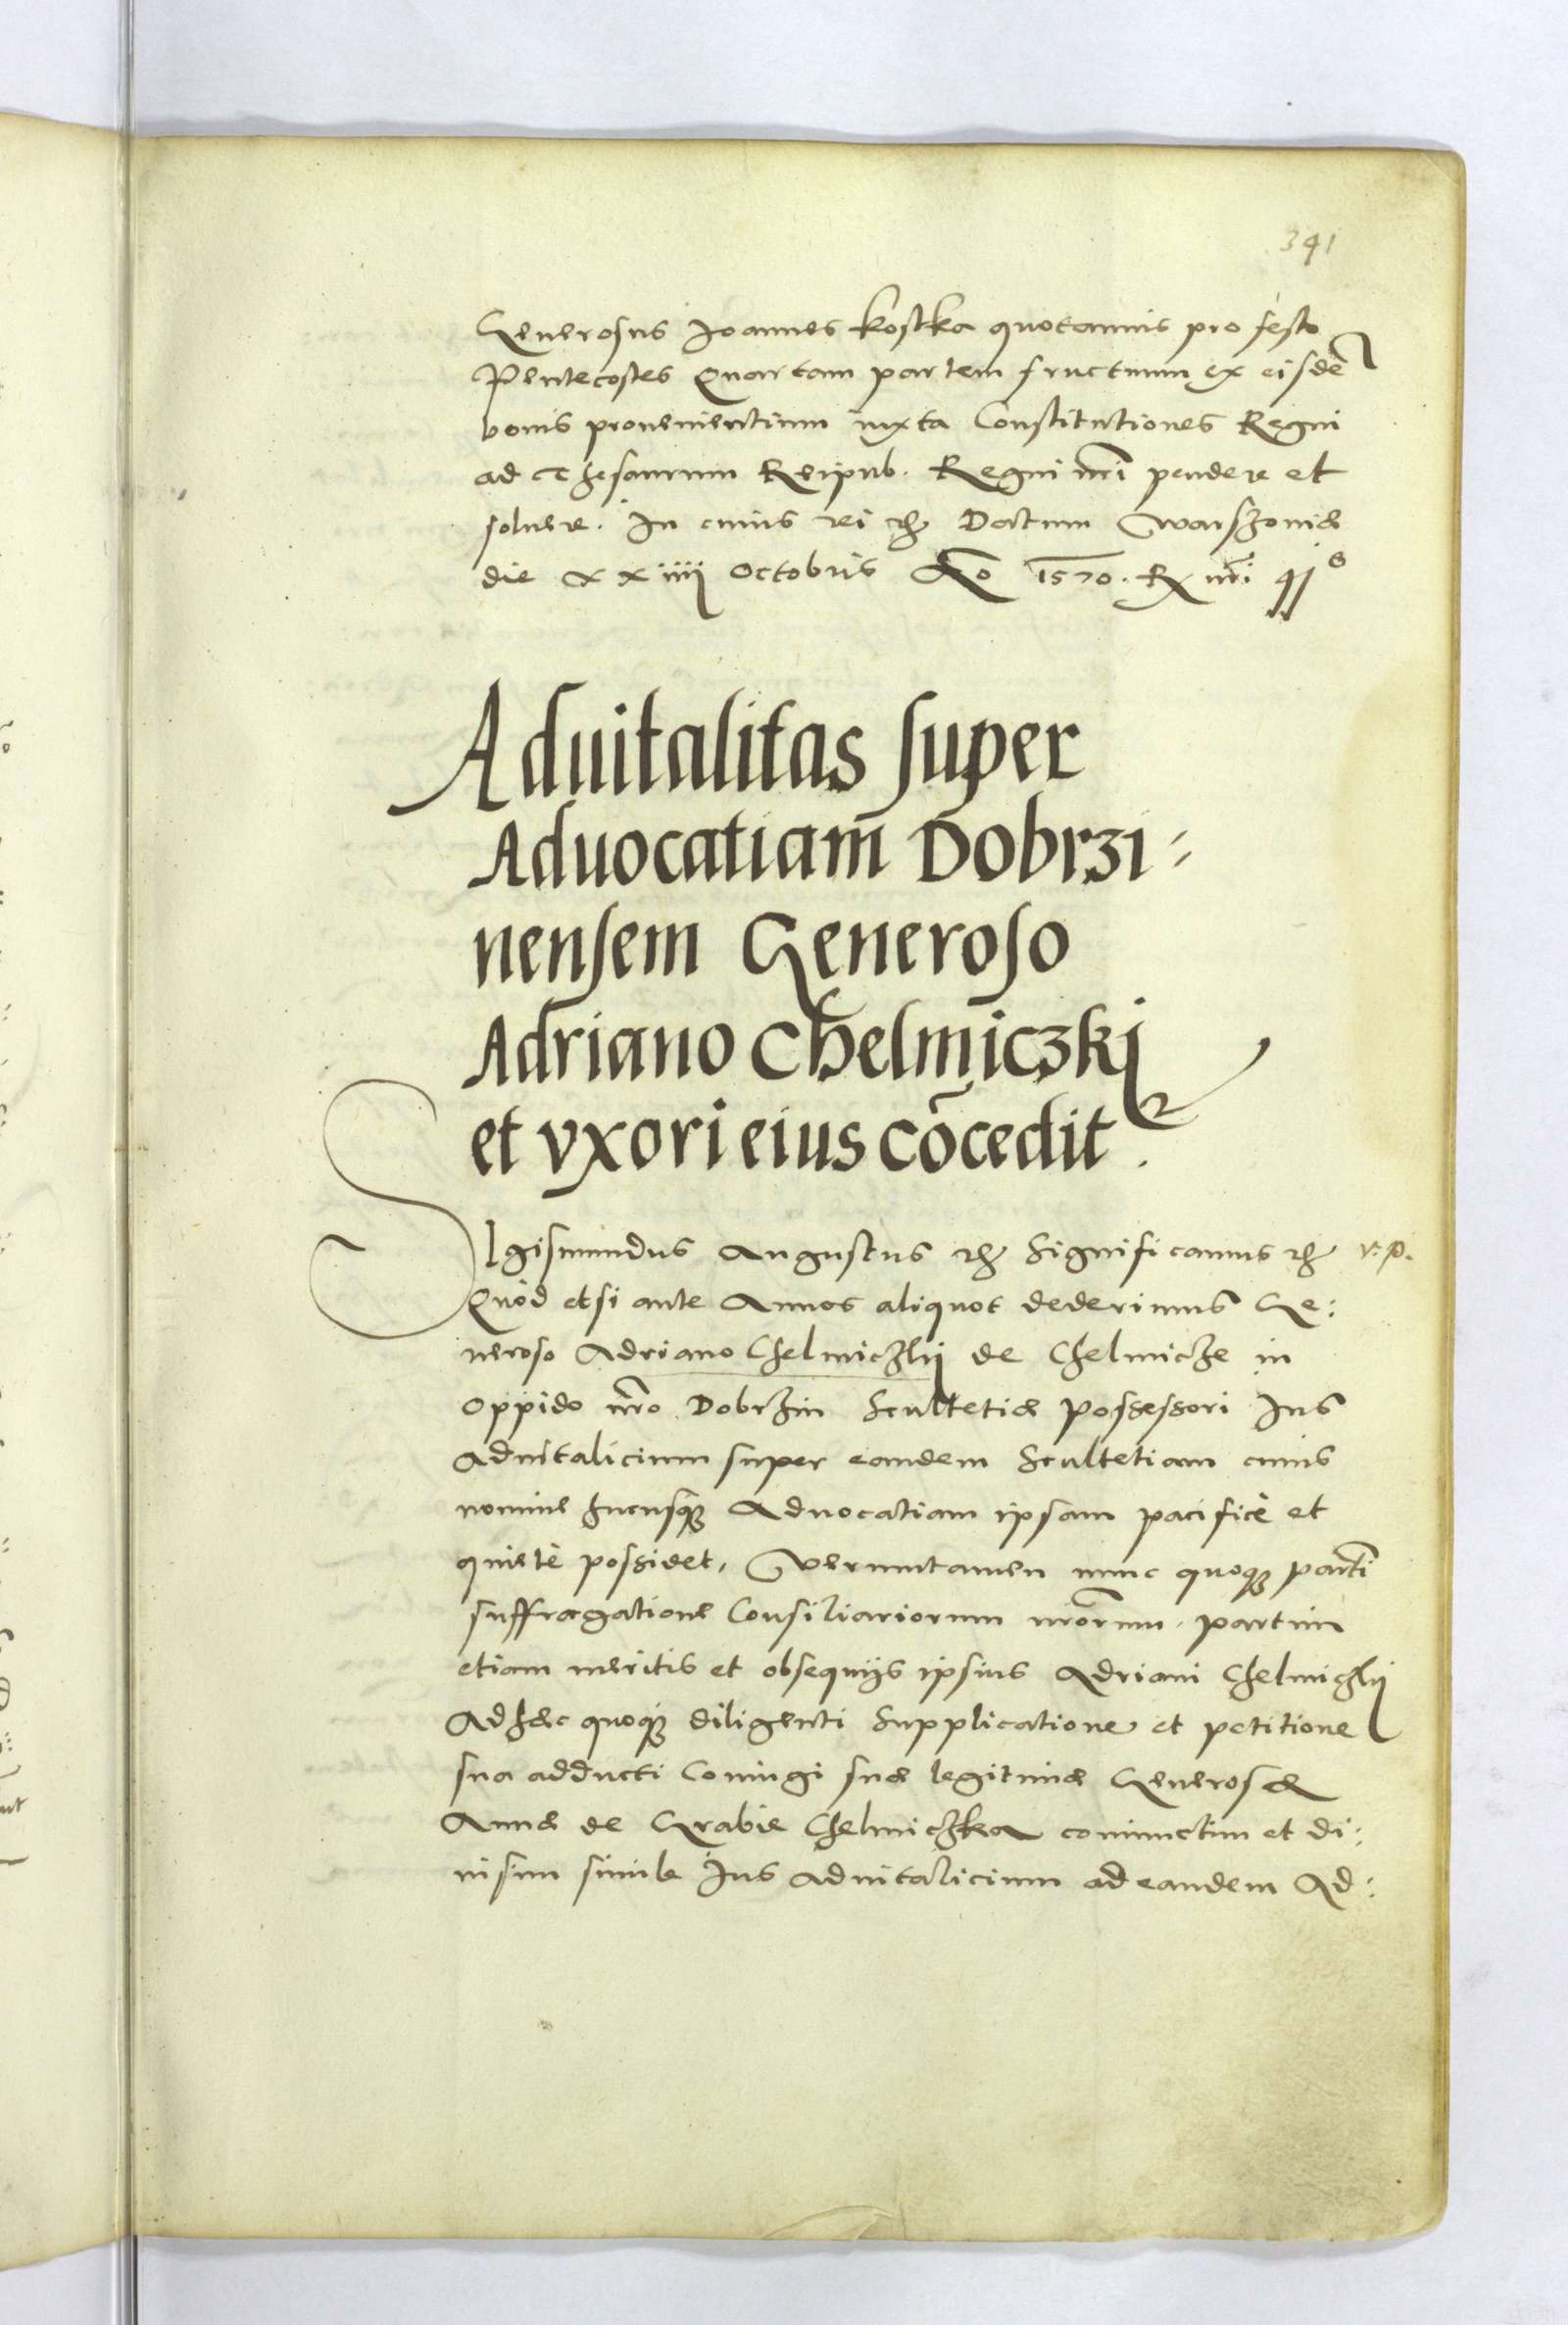 341
Generosus Joannes Kostka quotannis pro festo
Pentecostes Quartam partem fructuum ex eisdē
bonis provenientium iuxta Constitutiones Regni
ad Thesaurum Reipub. Regni nr̃i pendere et
soluere. In cuius rei etc Datum Warszouiæ
die xxiiij Octobris Ao 1570. R nr̃i 41o
Aduitalitas super
Aduocatiam̄ Dobrzi=
nensem Generoso
Adriano Chelmiczkj
et vxori eius cōcedit.
SIgismundus Augustus etc Significamus etc v. p.
Quòd etsi ante Annos aliquot dederimus Ge:
neroso Adriano Chelmiczkij de Chelmicze in
Oppido nr̃o Dobrzin Scultetiæ possessori Ius
aduitalicium super eandem Scultetiam cuius
nomine hucusq; Aduocatiam ipsam pacificè et
quietè possidet, Veruntamen nunc quoq; partī
suffragatione Consiliariorum nr̃orum, partim
etiam meritis et obsequijs ipsius Adriani Chelmiczkij
Adhæc quoq; diligenti Supplicatione et petitione
sua adducti Coniugi suæ legitimæ Generosæ
Annæ de Grabie Chelmiczka coniunctim et di:
uisim simile Ius aduitalicium ad eandem Ad: